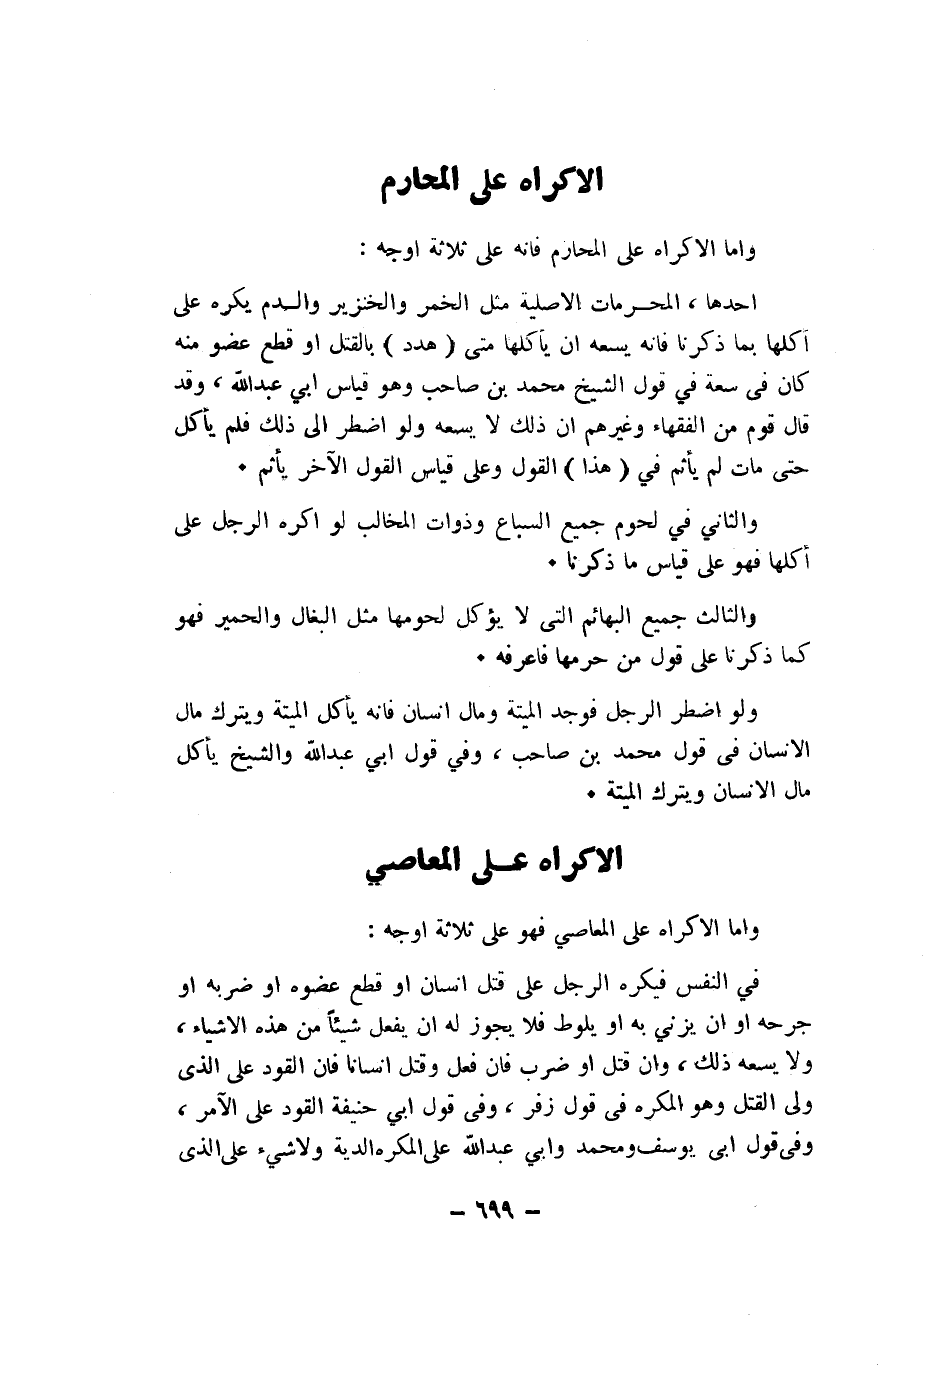 الاكراه على المحارم
واما الاكراه على المحارم فانه على ثلاثة اوجه :
احدها ، المحرمات الاصلية مثل الخمر والخنزير والدم يكره على
أكلها بما ذكرنا فانه يسعه ان يأكلها متى ( هدد ) بالقتل او قطع عضو منه
كان فى سعة في قول الشيخ محمد بن صاحب وهو قياس ابي عبدالله ، وقد
قال قوم من الفقهاء وغيرهم ان ذلك لا يسعه ولو اضطر الى ذلك فلم يأكل
حتى مات لم يأثم في ( هذا ) القول وعلى قياس القول الآخر يأثم •
والثاني في لحوم جميع السباع وذوات المخالب لو اكره الرجل على
أكلها فهو على قياس ما ذكرنا •
والثالث جميع البهائم التى لا يؤكل لحومها مثل البغال والحمير فهو
كما ذكرنا على قول من حرمها فاعرفه •
ولو اضطر الرجل فوجد الميتة ومال انسان فانه يأكل الميتة ويترك مال
الانسان فى قول محمد بن صاحب ، وفي قول ابي عبدالله والشيخ يأكل
مال الانسان ويترك الميتة •
الاكراه على المعاصي
واما الاكراه على المعاصي فهو على ثلاثة اوجه :
في النفس فيكره الرجل على قتل انسان او قطع عضوه او ضربه او
جرحه او ان يزني به او يلوط فلا يجوز له ان يفعل شيئاً من هذه الاشياء ،
ولا يسعه ذلك ، وان قتل او ضرب فان فعل وقتل انسانا فان القود على الذى
ولى القتل وهو المكره فى قول زفر ، وفى قول ابي حنيفة القود على الآمر ،
وفى قول ابى يوسف ومحمد وابي عبدالله على المكره الدية ولاشيء على الذى
– ٦٩٩ –